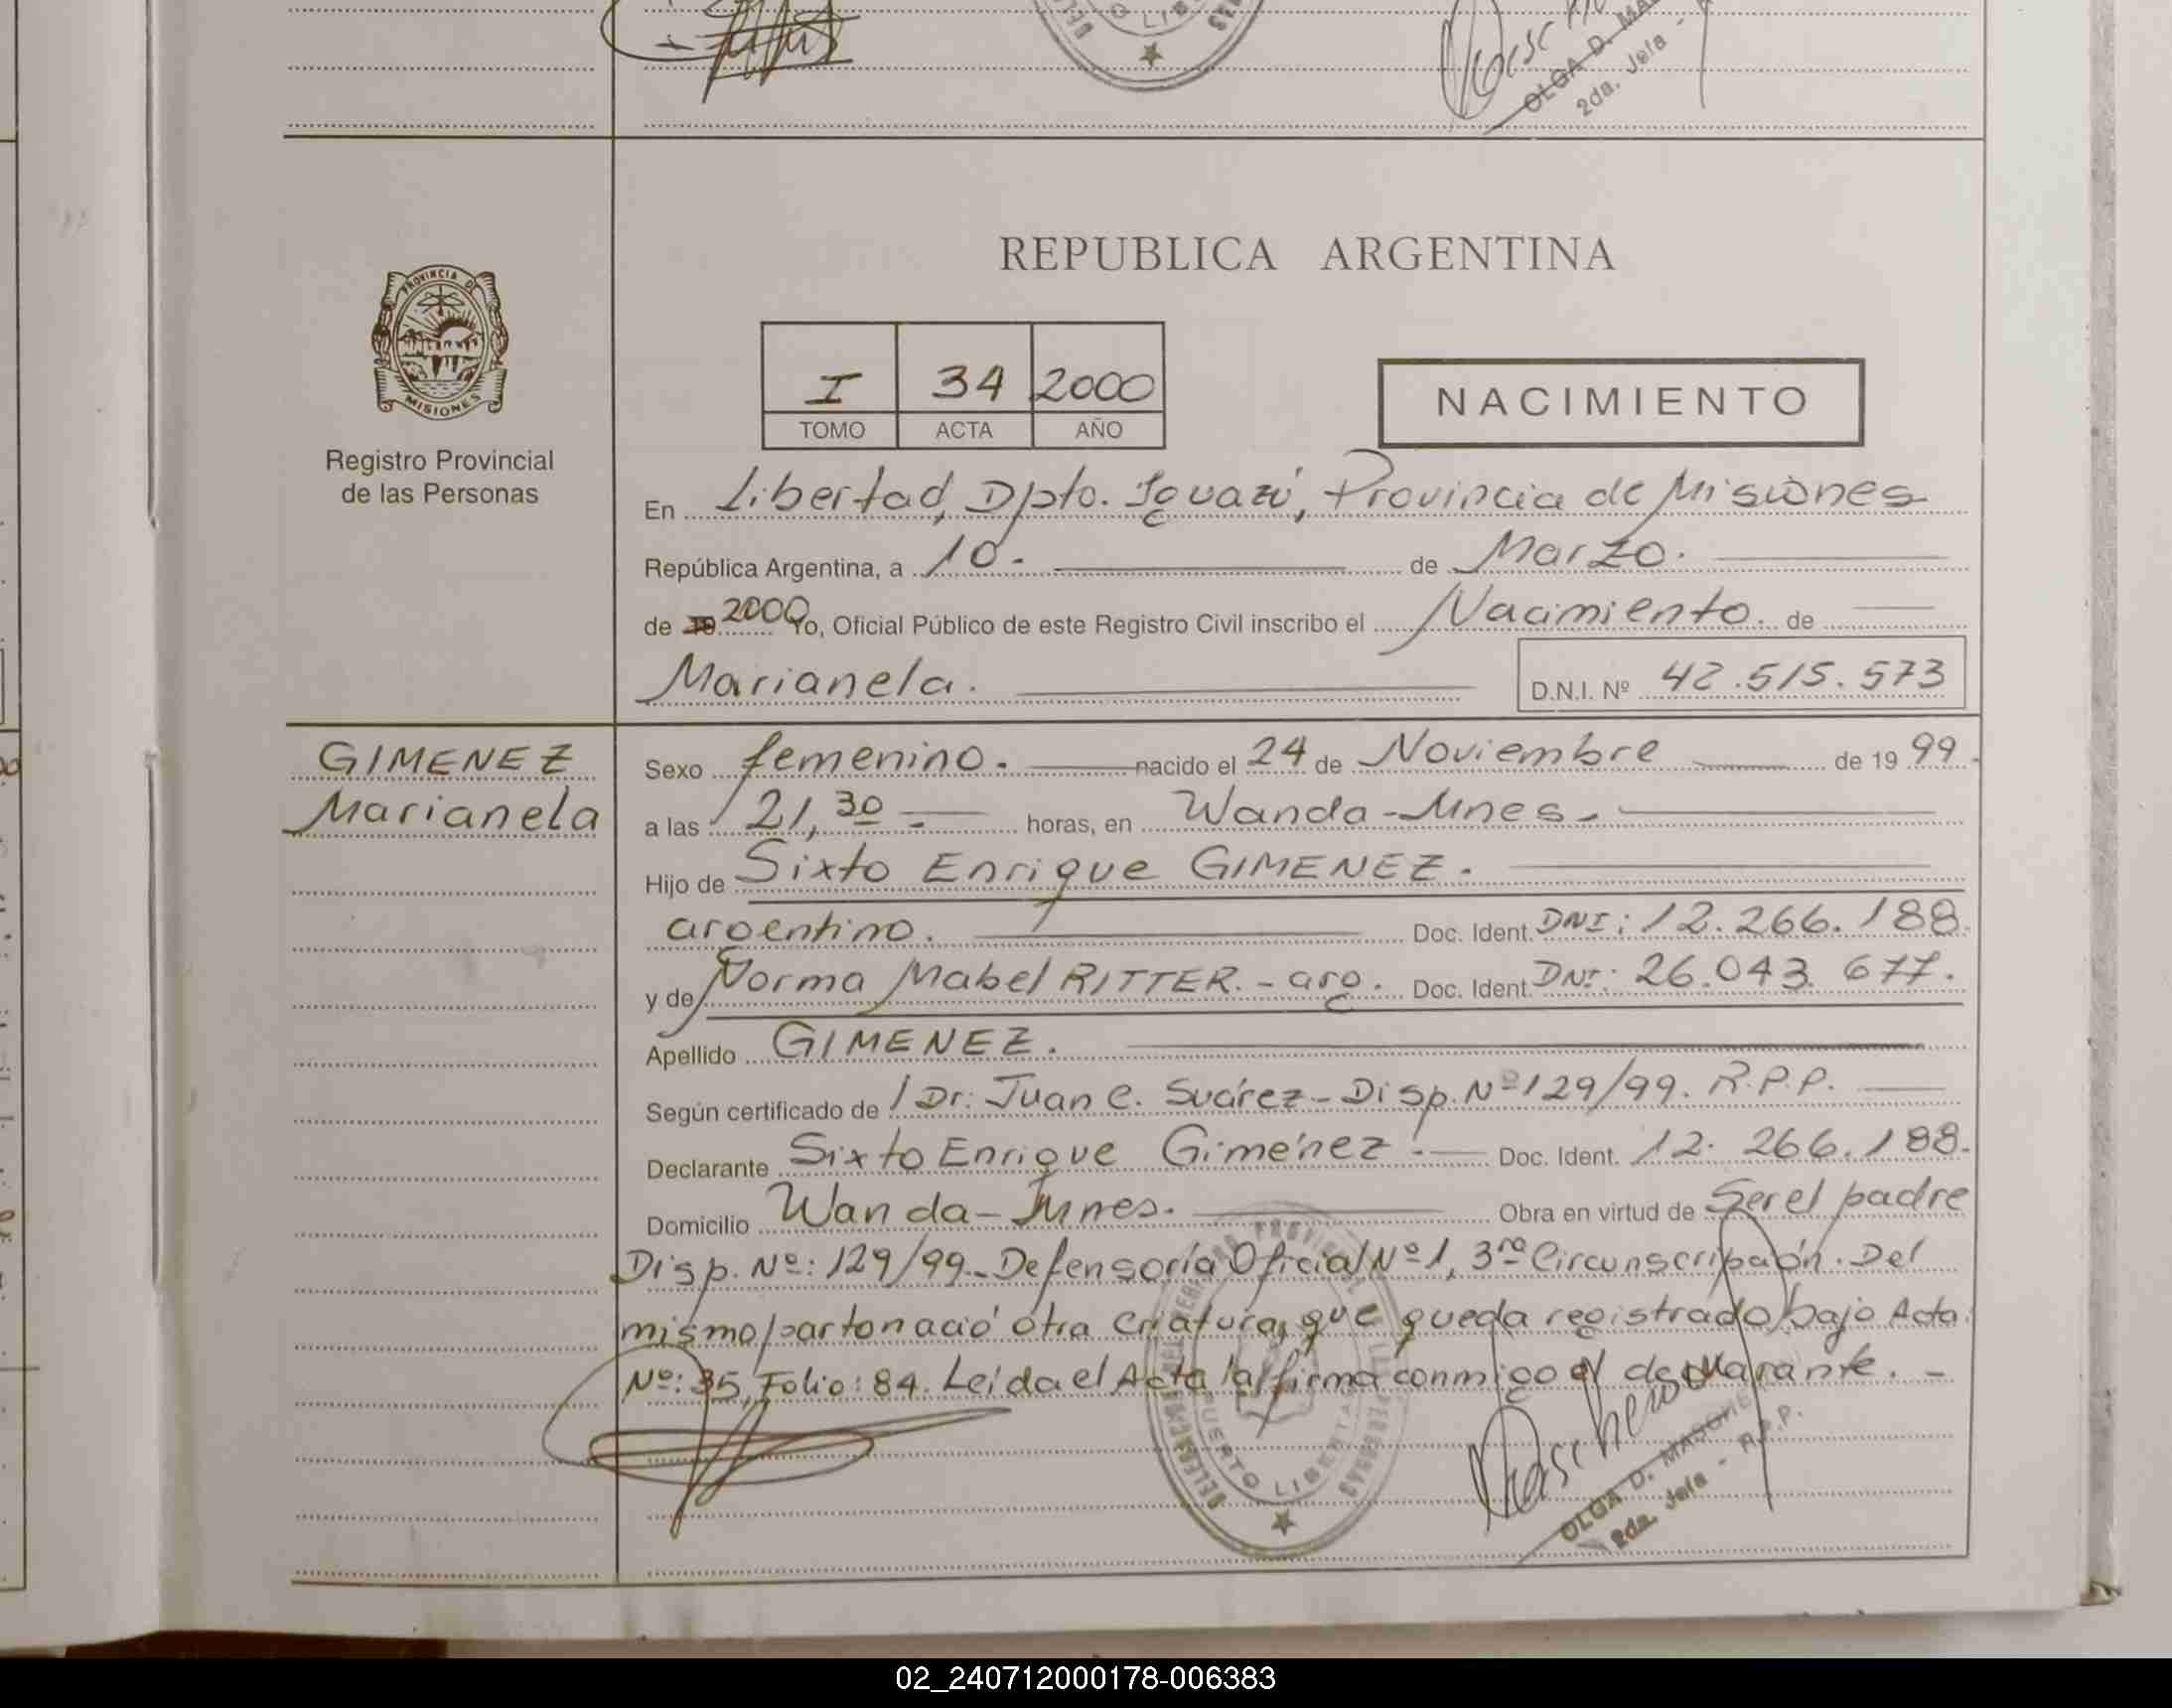 OLGA D.
2da. Jefa -
REPUBLICA ARGENTINA
PROVINCIA DE
MISIONES
Registro Provincial
de las Personas
I 34 2000
TOMO ACTA AÑO
NACIMIENTO
En Libertad, Dpto. Iguazú, Provincia de Misiones
República Argentina, a 10.- de Marzo.
de 19 2000 Yo, Oficial Público de este Registro Civil inscribo el Nacimiento. de
Marianela. D.N.I. Nº 42.515.573
GIMENEZ
Marianela
Sexo femenino. nacido el 24 de Noviembre de 19 99.
a las 21,30 - horas, en Wanda-Mnes.
Hijo de Sixto Enrique GIMENEZ.
argentino. Doc. Ident. DNI: 12.266.188.
y de Norma Mabel RITTER.- arg. Doc. Ident. DNI: 26.043.677.
Apellido GIMENEZ.
Según certificado de / Dr. Juan C. Suárez-Disp. Nº 129/99. R.P.P.
Declarante Sixto Enrique Giménez.- Doc. Ident. 12.266.188.
Domicilio Wanda-Mnes. Obra en virtud de Ser el padre
Disp. Nº: 129/99.-Defensoría Oficial Nº 1, 3ra Circunscripción. Del
mismo parto nació otra criatura, que queda registrado bajo Acta
Nº: 35, Folio: 84. Leída el Acta la firma conmigo el declarante. -
PUERTO LIBERTAD
OLGA D.
2da. Jefa - R.P.P.
02_240712000178-006383